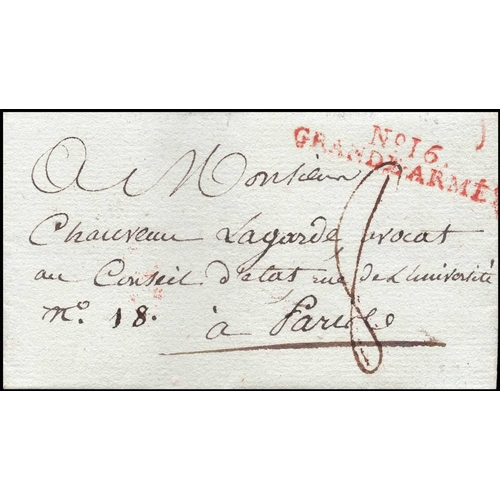 No 16.
GRANDE ARMÉE
A Monsieur
Chauveau Lagarde, avocat
au Conseil d'etat rue de L'université
n.º 18.
à Paris
8